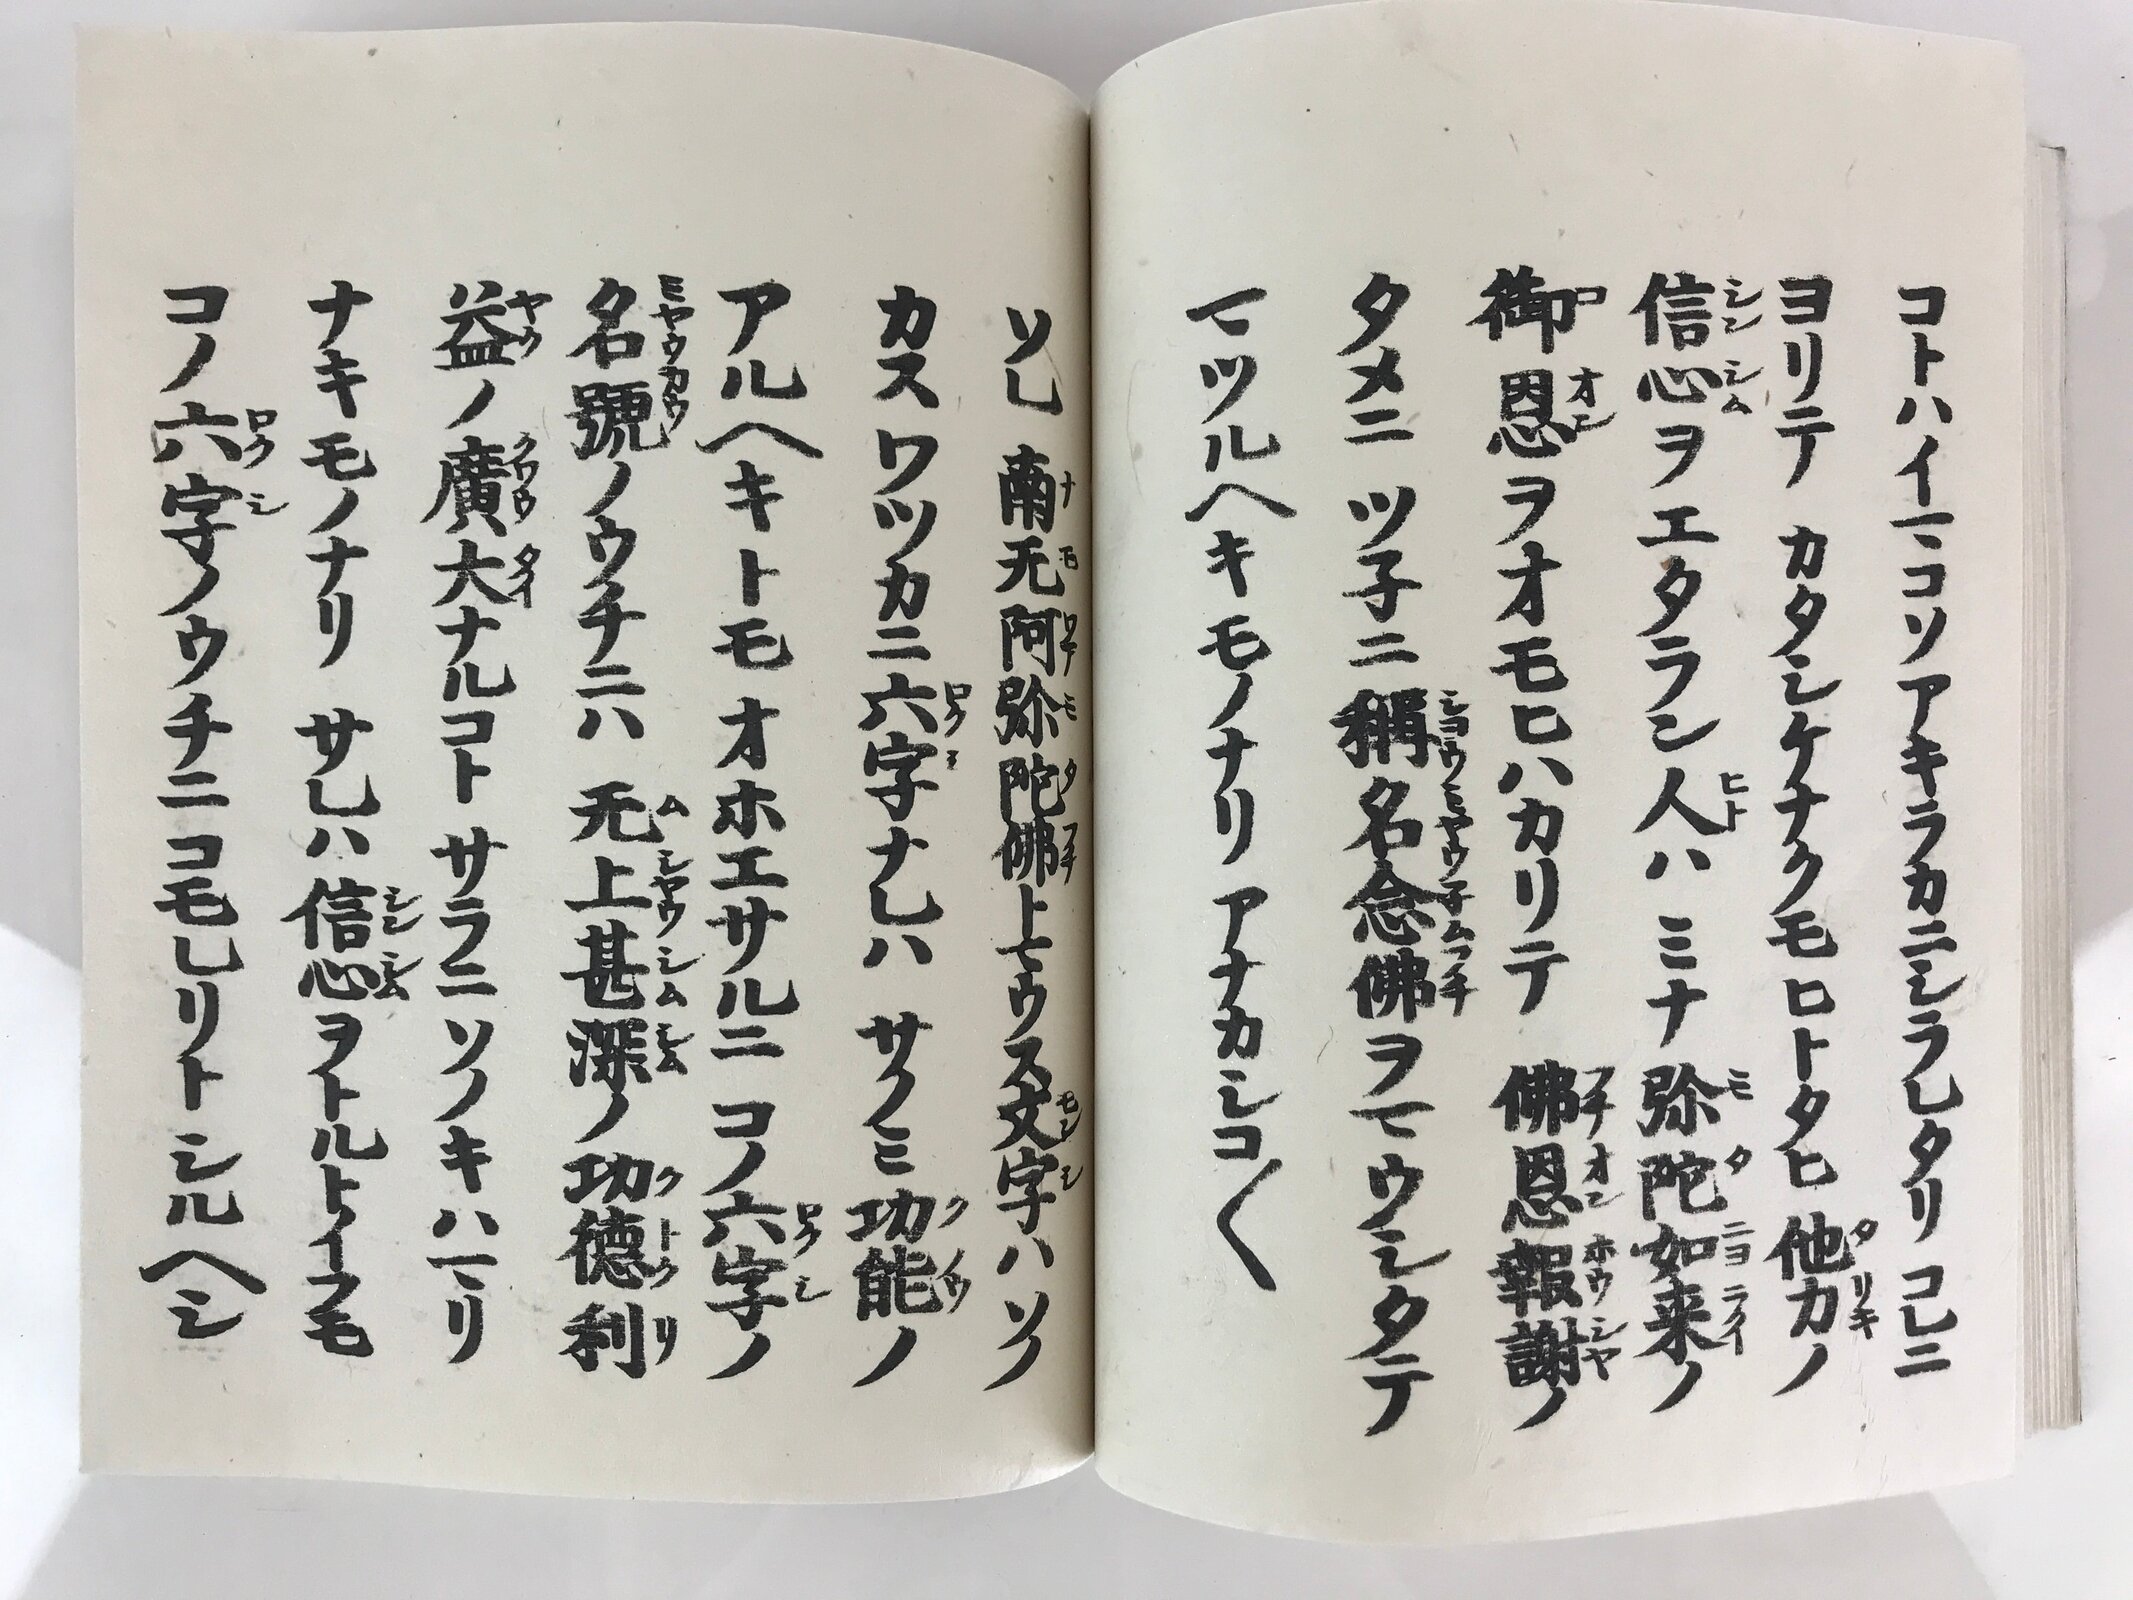 コトハイマコソアキラカニシラレタリコレニ
ヨリテカタシケナクモヒトタヒ他力ノ
信心ヲエタラン人ハミナ弥陀如来ノ
御恩ヲオモヒハカリテ佛恩報謝ノ
タメニツ子ニ稱名念佛ヲマウシタテ
マツルヘキモノナリアナカシコ〱
ソレ南无阿弥陀佛トマウス文字ハソノ
カスワツカニ六字ナレハサノミ功能ノ
アルヘキトモオホエサルニコノ六字ノ
名號ノウチニハ无上甚深ノ功德利
益ノ廣大ナルコトサラニソノキハマリ
ナキモノナリサレハ信心ヲトルトイフモ
コノ六字ノウチニコモレリトシルヘシ